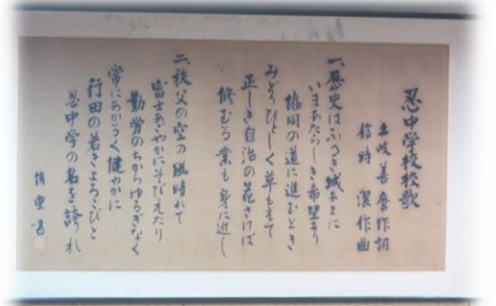 忍中学校校歌
土岐善麿作詞
信時 潔作曲
一、歴史はふるき城あとに
いまあたらしき希望あり
協同の道に進むとき
みどりひとしく草もえて
正しき自治の花さけば
修むる業も身に近し
二、秩父の空の風晴れて
富士あざやかにそびえたり
勤労のちからゆるぎなく
常にあかるく健やかに
行田の若きよろこびと
忍中学の名を誇れ